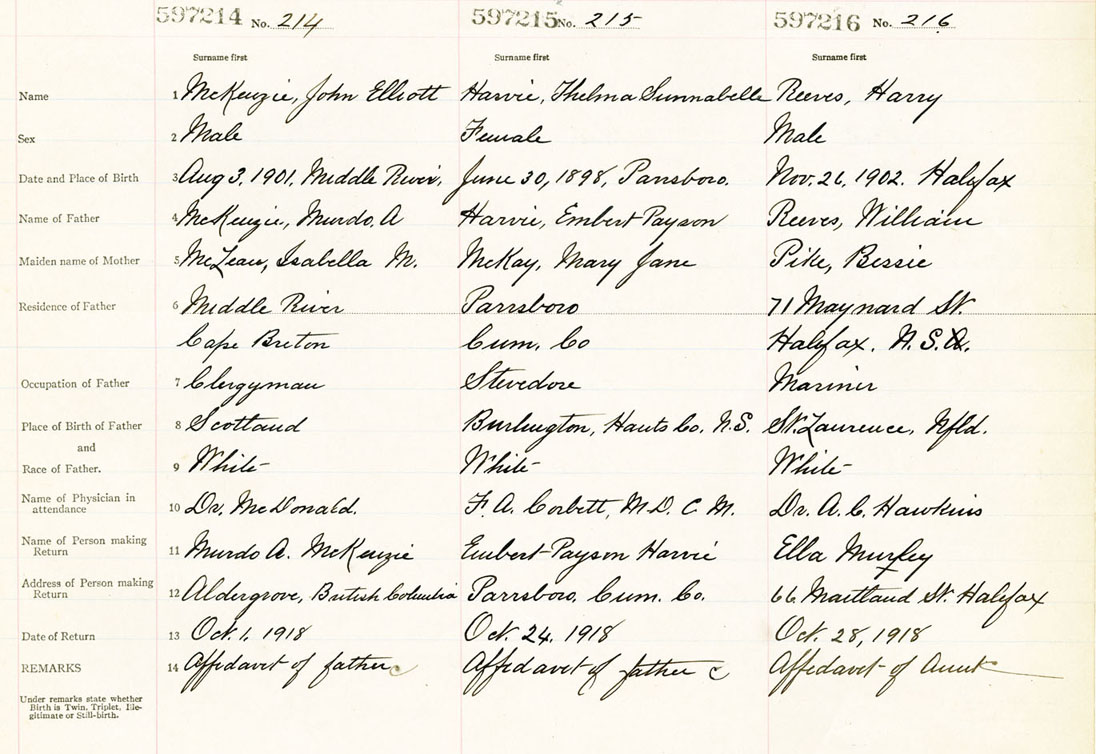 597214 No. 214 597215 No. 215 597216 No. 216
Surname first Surname first Surname first
Name 1 McKenzie, John Elliott Harvie, Thelma Sunnabelle Reeves, Harry
Sex 2 Male Female Male
Date and Place of Birth 3 Aug 3, 1901, Middle River, June 30, 1898, Parrsboro. Nov. 26, 1902. Halifax
Name of Father 4 McKenzie, Murdo. A Harvie, Embert Payson Reeves, William
Maiden name of Mother 5 McLean, Isabella M. McKay, Mary Jane Pike, Bessie
Residence of Father 6 Middle River Parrsboro 71 Maynard St.
Cape Breton Cum. Co Halifax. N.S.
Occupation of Father 7 Clergyman Stevedore Mariner
Place of Birth of Father 8 Scotland Burlington, Hants Co. N.S. St. Laurence, Nfld.
and
Race of Father. 9 White White White
Name of Physician in
attendance 10 Dr. McDonald. F. A. Corbett, M.D. C.M. Dr. A. C. Hawkins
Name of Person making
Return 11 Murdo A. McKenzie Embert Payson Harvie Ella
Address of Person making
Return 12 Aldergrove, British Columbia Parrsboro. Cum. Co. 66 Maitland St. Halifax
Date of Return 13 Oct. 1, 1918 Oct. 24, 1918 Oct. 28, 1918
REMARKS 14 Affidavet of father Affidavet of father Affidavet of Aunt
Under remarks state whether
Birth is Twin, Triplet, Ille-
gitimate or Still-birth.